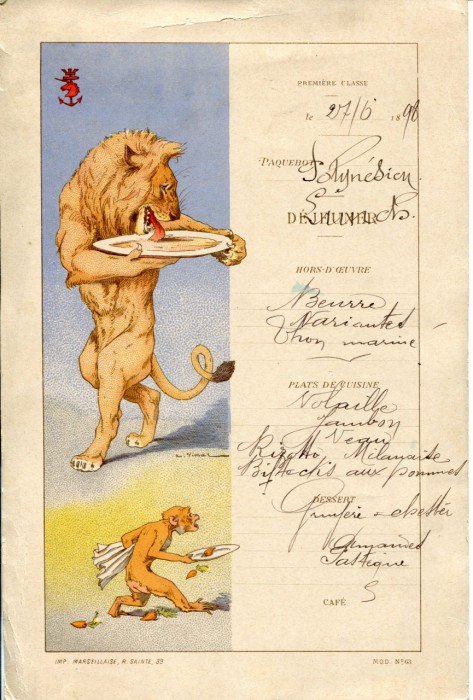 PREMIÈRE CLASSE
le 27/6 1898
PAQUEBOT Polynésien
DÉJEUNER
HORS-D'ŒUVRE
Beurre
Variantes
Thon mariné
PLATS DE CUISINE
Volaille
Jambon
Veau
Rizotto Milanaise
Biftecks aux pommes
DESSERT
Gruyère - chester
Amandes
Pastèque
CAFÉ
IMP. MARSEILLAISE, R. SAINTE, 39
MOD. N°61